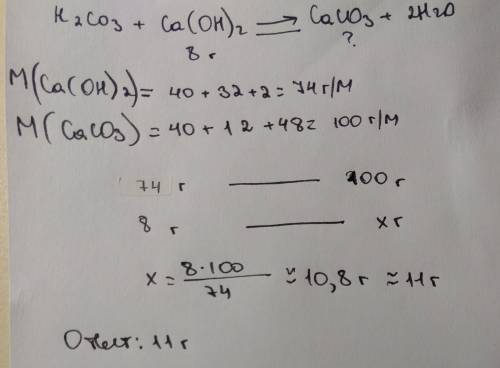 H₂CO₃ + Ca(OH)₂ ⇌ CaCO₃ + 2H₂O
8 г ?
M(Ca(OH)₂) = 40 + 32 + 2 = 74 г/М
M(CaCO₃) = 40 + 12 + 48 = 100 г/М
74 г — 100 г
8 г — x г
x = 8·100/74 ≈ 10,8 г ≈ 11 г
Ответ: 11 г